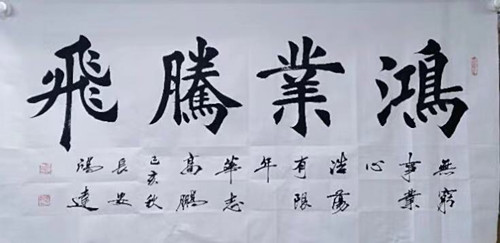 鴻業騰飛
無窮
事業
心
浩蕩
有限
年
華志
高鵬
己亥秋
長安
達